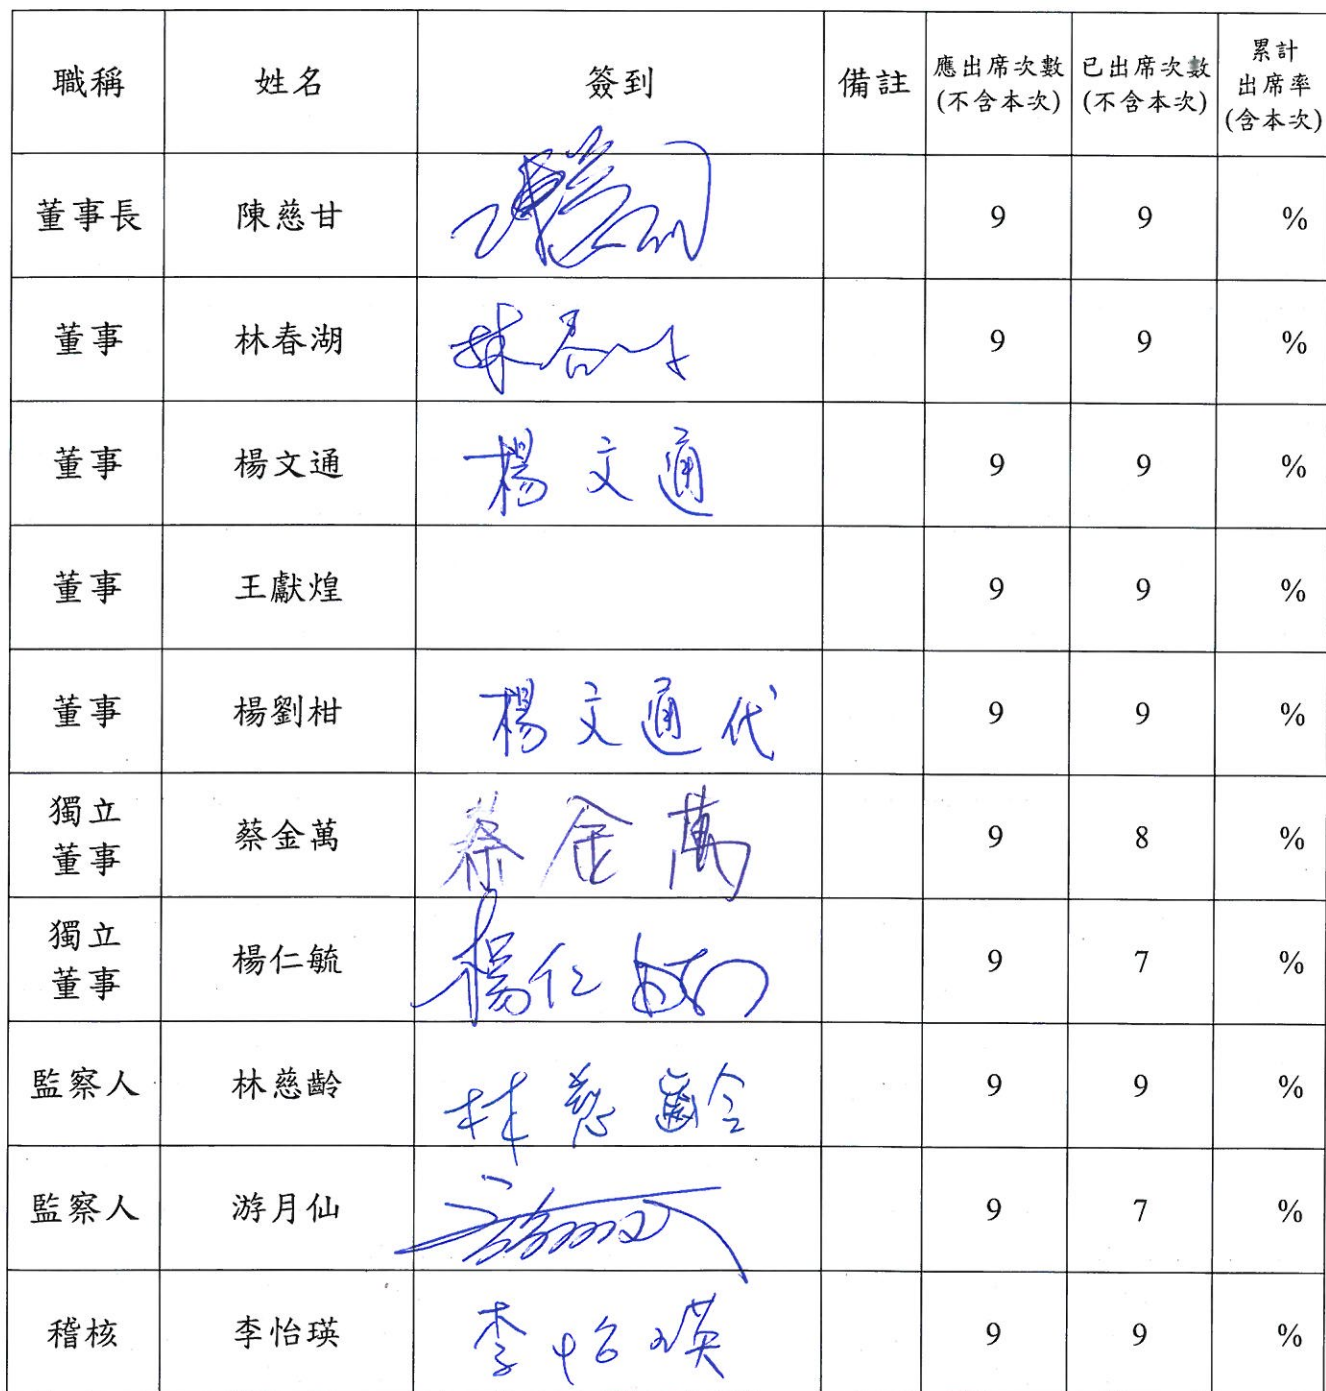 職稱 姓名 簽到 備註 應出席次數(不含本次) 已出席次數(不含本次) 累計出席率(含本次)
董事長 陳慈甘 9 9 %
董事 林春湖 林春 9 9 %
董事 楊文通 楊文通 9 9 %
董事 王獻煌 9 9 %
董事 楊劉柑 楊文通代 9 9 %
獨立董事 蔡金萬 蔡金萬 9 8 %
獨立董事 楊仁毓 楊仁毓 9 7 %
監察人 林慈齡 林慈齡 9 9 %
監察人 游月仙 9 7 %
稽核 李怡瑛 李怡瑛 9 9 %